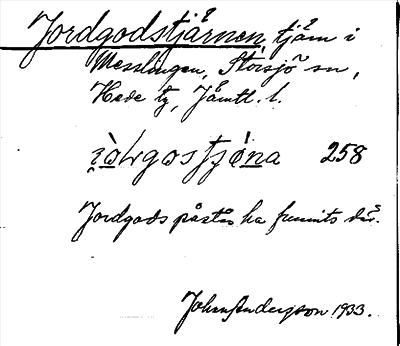 Jordgodstjärnen, tjärn i
Messlingen, Storsjö sn,
Hede tg, Jämtl. l.
258
Jordgods påstås ha funnits där.
Johan Anderzon 1933.